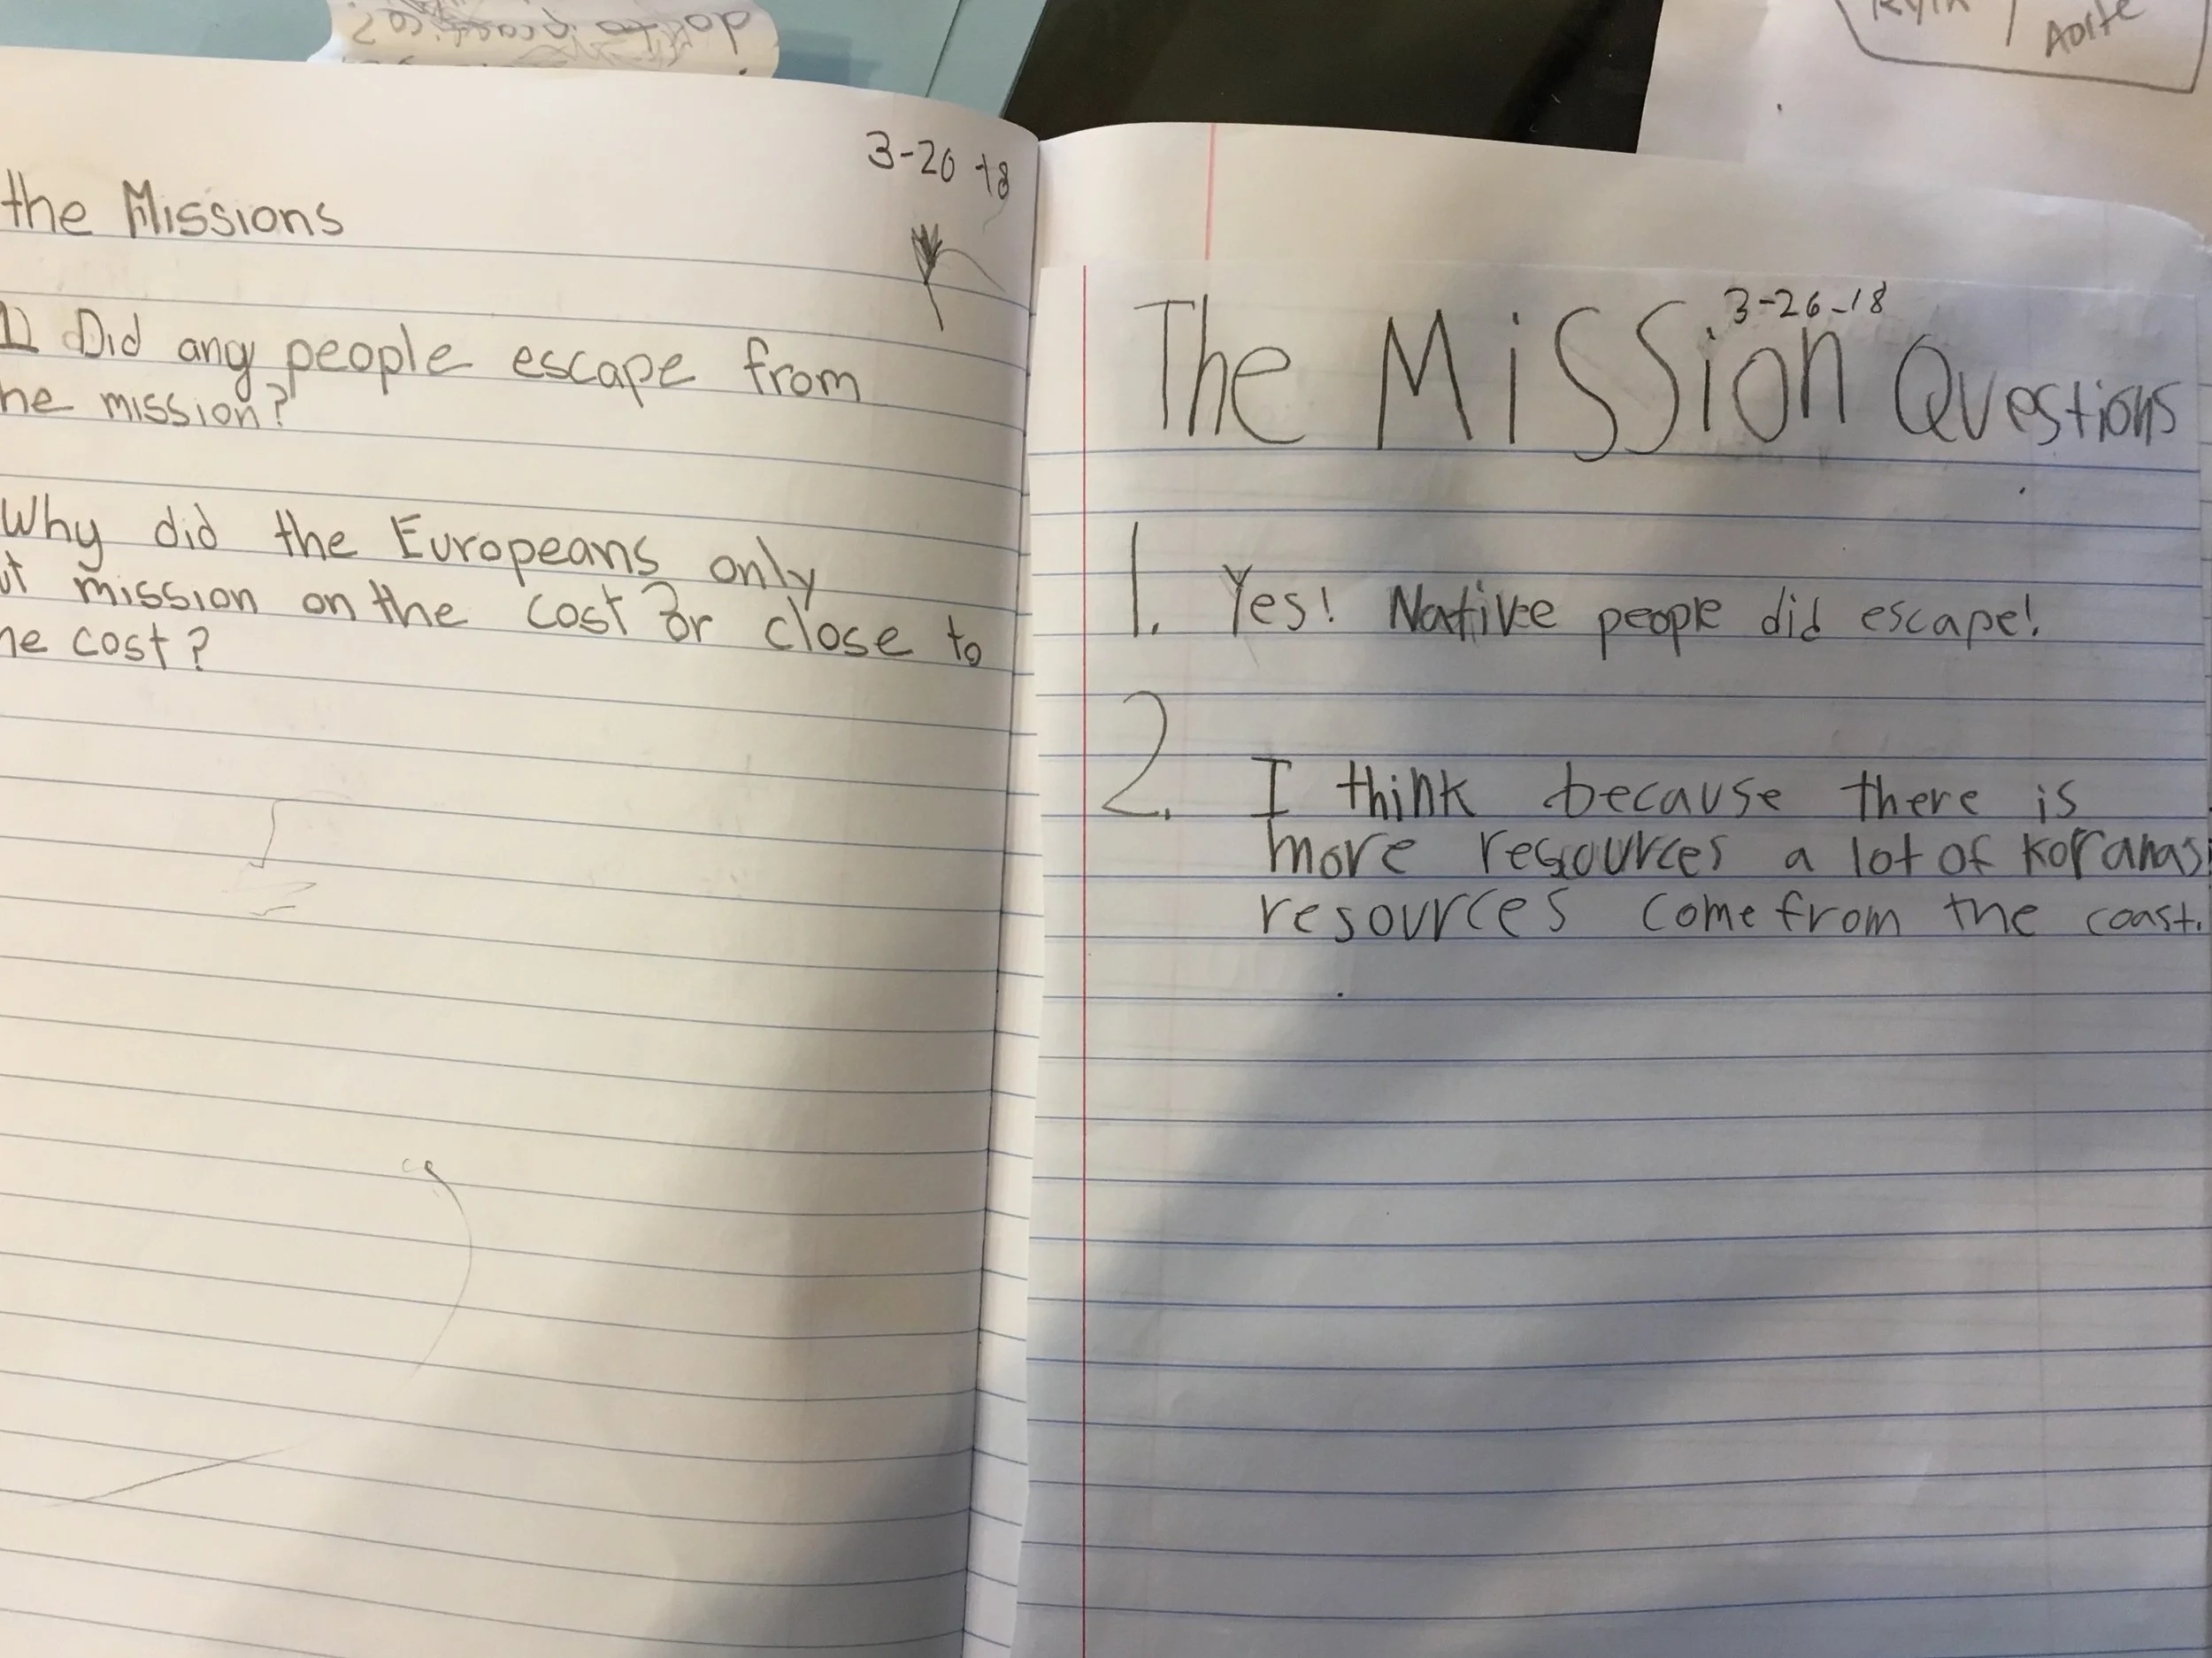 3-20-18
the Missions
1) Did any people escape from
he mission?
Why did the Europeans only
ut mission on the cost or close to
he cost?
3-26-18
The Mission Questions
1. Yes! Native people did escape!
2. I think because there is
more resources a lot of Koranas
resources come from the coast.
Aorte
do to practice?